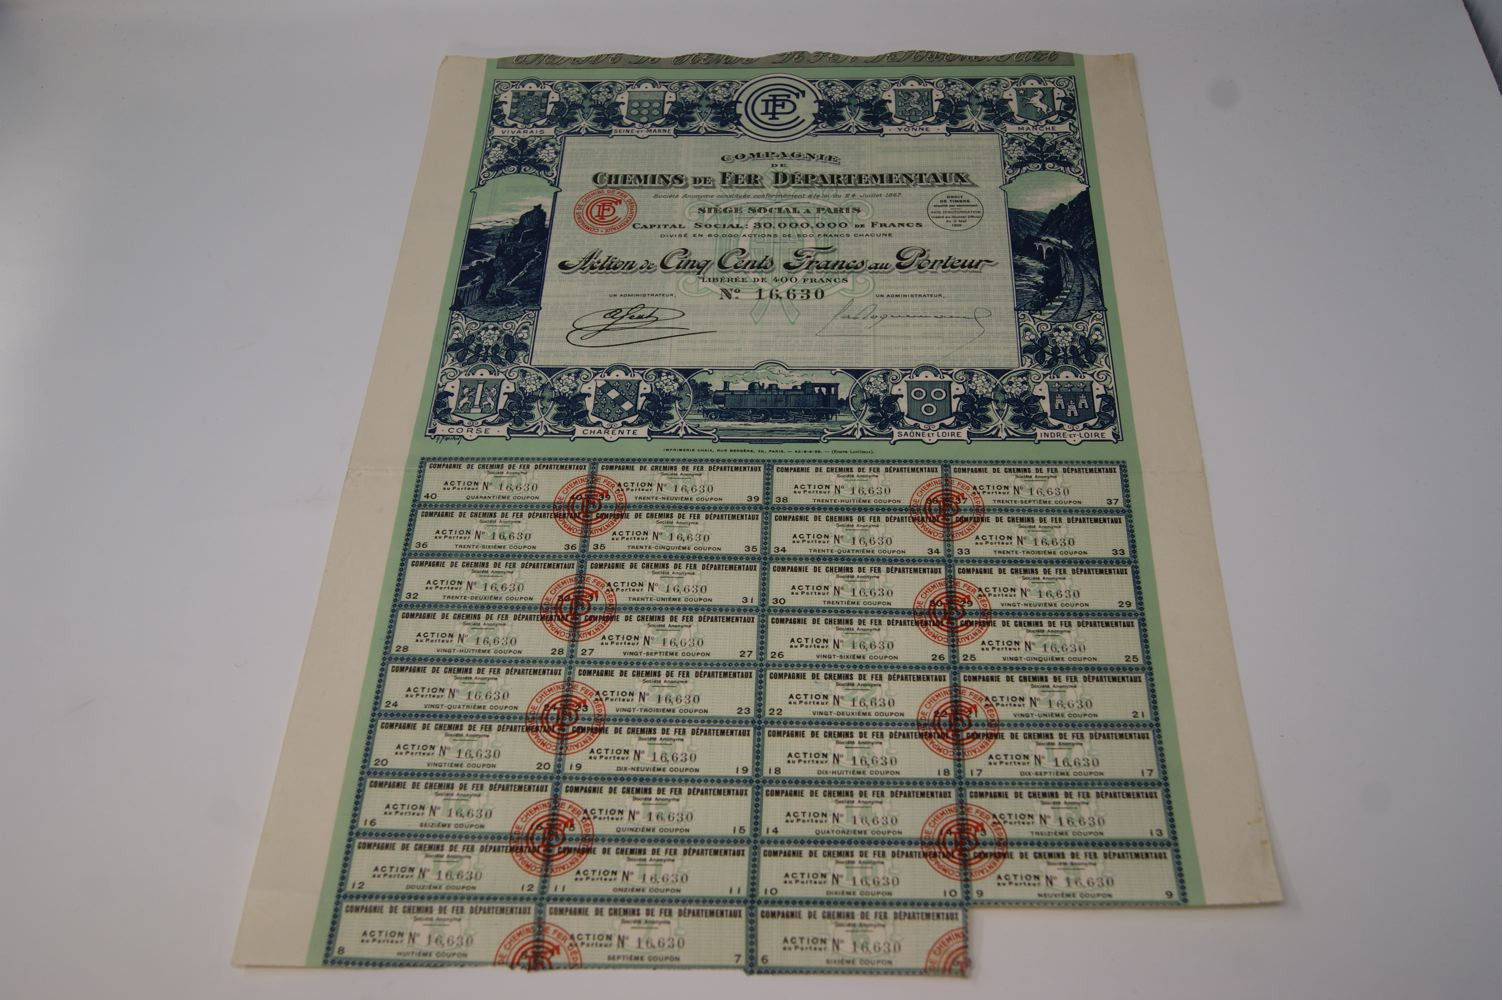 VIVARAIS
SEINE-ET-MARNE
CFD
YONNE
MANCHE
COMPAGNIE
DE
CHEMINS DE FER DÉPARTEMENTAUX
Société Anonyme constituée conformément à la loi du 24 Juillet 1867.
SIÈGE SOCIAL A PARIS
CAPITAL SOCIAL: 30,000,000 DE FRANCS
DIVISÉ EN 60,000 ACTIONS DE 500 FRANCS CHACUNE
DROIT
DE TIMBRE
Action de Cinq Cents Francs au Porteur
LIBÉRÉE DE 400 FRANCS
Nº 16,630
UN ADMINISTRATEUR,
UN ADMINISTRATEUR,
CORSE
CHARENTE
SAÔNE ET LOIRE
INDRE ET LOIRE
IMPRIMERIE CHAIX, RUE BERGÈRE, 20, PARIS.
COMPAGNIE DE CHEMINS DE FER DÉPARTEMENTAUX
Société Anonyme
ACTION
au Porteur Nº 16,630
40 QUARANTIÈME COUPON
COMPAGNIE DE CHEMINS DE FER DÉPARTEMENTAUX
Société Anonyme
ACTION
au Porteur Nº 16,630
TRENTE-NEUVIÈME COUPON 39
COMPAGNIE DE CHEMINS DE FER DÉPARTEMENTAUX
Société Anonyme
ACTION
au Porteur Nº 16,630
38 TRENTE-HUITIÈME COUPON
COMPAGNIE DE CHEMINS DE FER DÉPARTEMENTAUX
Société Anonyme
ACTION
au Porteur Nº 16,630
TRENTE-SEPTIÈME COUPON 37
COMPAGNIE DE CHEMINS DE FER DÉPARTEMENTAUX
Société Anonyme
ACTION
au Porteur Nº 16,630
36 TRENTE-SIXIÈME COUPON 36
COMPAGNIE DE CHEMINS DE FER DÉPARTEMENTAUX
Société Anonyme
ACTION
au Porteur Nº 16,630
35 TRENTE-CINQUIÈME COUPON 35
COMPAGNIE DE CHEMINS DE FER DÉPARTEMENTAUX
Société Anonyme
ACTION
au Porteur Nº 16,630
34 TRENTE-QUATRIÈME COUPON 34
COMPAGNIE DE CHEMINS DE FER DÉPARTEMENTAUX
Société Anonyme
ACTION
au Porteur Nº 16,630
33 TRENTE-TROISIÈME COUPON 33
COMPAGNIE DE CHEMINS DE FER DÉPARTEMENTAUX
Société Anonyme
ACTION
au Porteur Nº 16,630
32 TRENTE-DEUXIÈME COUPON
COMPAGNIE DE CHEMINS DE FER DÉPARTEMENTAUX
Société Anonyme
ACTION
au Porteur Nº 16,630
TRENTE-UNIÈME COUPON 31
COMPAGNIE DE CHEMINS DE FER DÉPARTEMENTAUX
Société Anonyme
ACTION
au Porteur Nº 16,630
30 TRENTIÈME COUPON
COMPAGNIE DE CHEMINS DE FER DÉPARTEMENTAUX
Société Anonyme
ACTION
au Porteur Nº 16,630
VINGT-NEUVIÈME COUPON 29
COMPAGNIE DE CHEMINS DE FER DÉPARTEMENTAUX
Société Anonyme
ACTION
au Porteur Nº 16,630
28 VINGT-HUITIÈME COUPON 28
COMPAGNIE DE CHEMINS DE FER DÉPARTEMENTAUX
Société Anonyme
ACTION
au Porteur Nº 16,630
27 VINGT-SEPTIÈME COUPON 27
COMPAGNIE DE CHEMINS DE FER DÉPARTEMENTAUX
Société Anonyme
ACTION
au Porteur Nº 16,630
26 VINGT-SIXIÈME COUPON 26
COMPAGNIE DE CHEMINS DE FER DÉPARTEMENTAUX
Société Anonyme
ACTION
au Porteur Nº 16,630
25 VINGT-CINQUIÈME COUPON 25
COMPAGNIE DE CHEMINS DE FER DÉPARTEMENTAUX
Société Anonyme
ACTION
au Porteur Nº 16,630
24 VINGT-QUATRIÈME COUPON
COMPAGNIE DE CHEMINS DE FER DÉPARTEMENTAUX
Société Anonyme
ACTION
au Porteur Nº 16,630
VINGT-TROISIÈME COUPON 23
COMPAGNIE DE CHEMINS DE FER DÉPARTEMENTAUX
Société Anonyme
ACTION
au Porteur Nº 16,630
22 VINGT-DEUXIÈME COUPON
COMPAGNIE DE CHEMINS DE FER DÉPARTEMENTAUX
Société Anonyme
ACTION
au Porteur Nº 16,630
VINGT-UNIÈME COUPON 21
COMPAGNIE DE CHEMINS DE FER DÉPARTEMENTAUX
Société Anonyme
ACTION
au Porteur Nº 16,630
20 VINGTIÈME COUPON 20
COMPAGNIE DE CHEMINS DE FER DÉPARTEMENTAUX
Société Anonyme
ACTION
au Porteur Nº 16,630
19 DIX-NEUVIÈME COUPON 19
COMPAGNIE DE CHEMINS DE FER DÉPARTEMENTAUX
Société Anonyme
ACTION
au Porteur Nº 16,630
18 DIX-HUITIÈME COUPON 18
COMPAGNIE DE CHEMINS DE FER DÉPARTEMENTAUX
Société Anonyme
ACTION
au Porteur Nº 16,630
17 DIX-SEPTIÈME COUPON 17
COMPAGNIE DE CHEMINS DE FER DÉPARTEMENTAUX
Société Anonyme
ACTION
au Porteur Nº 16,630
16 SEIZIÈME COUPON
COMPAGNIE DE CHEMINS DE FER DÉPARTEMENTAUX
Société Anonyme
ACTION
au Porteur Nº 16,630
QUINZIÈME COUPON 15
COMPAGNIE DE CHEMINS DE FER DÉPARTEMENTAUX
Société Anonyme
ACTION
au Porteur Nº 16,630
14 QUATORZIÈME COUPON
COMPAGNIE DE CHEMINS DE FER DÉPARTEMENTAUX
Société Anonyme
ACTION
au Porteur Nº 16,630
TREIZIÈME COUPON 13
COMPAGNIE DE CHEMINS DE FER DÉPARTEMENTAUX
Société Anonyme
ACTION
au Porteur Nº 16,630
12 DOUZIÈME COUPON 12
COMPAGNIE DE CHEMINS DE FER DÉPARTEMENTAUX
Société Anonyme
ACTION
au Porteur Nº 16,630
11 ONZIÈME COUPON 11
COMPAGNIE DE CHEMINS DE FER DÉPARTEMENTAUX
Société Anonyme
ACTION
au Porteur Nº 16,630
10 DIXIÈME COUPON 10
COMPAGNIE DE CHEMINS DE FER DÉPARTEMENTAUX
Société Anonyme
ACTION
au Porteur Nº 16,630
9 NEUVIÈME COUPON 9
COMPAGNIE DE CHEMINS DE FER DÉPARTEMENTAUX
Société Anonyme
ACTION
au Porteur Nº 16,630
8 HUITIÈME COUPON
COMPAGNIE DE CHEMINS DE FER DÉPARTEMENTAUX
Société Anonyme
ACTION
au Porteur Nº 16,630
SEPTIÈME COUPON 7
COMPAGNIE DE CHEMINS DE FER DÉPARTEMENTAUX
Société Anonyme
ACTION
au Porteur Nº 16,630
6 SIXIÈME COUPON